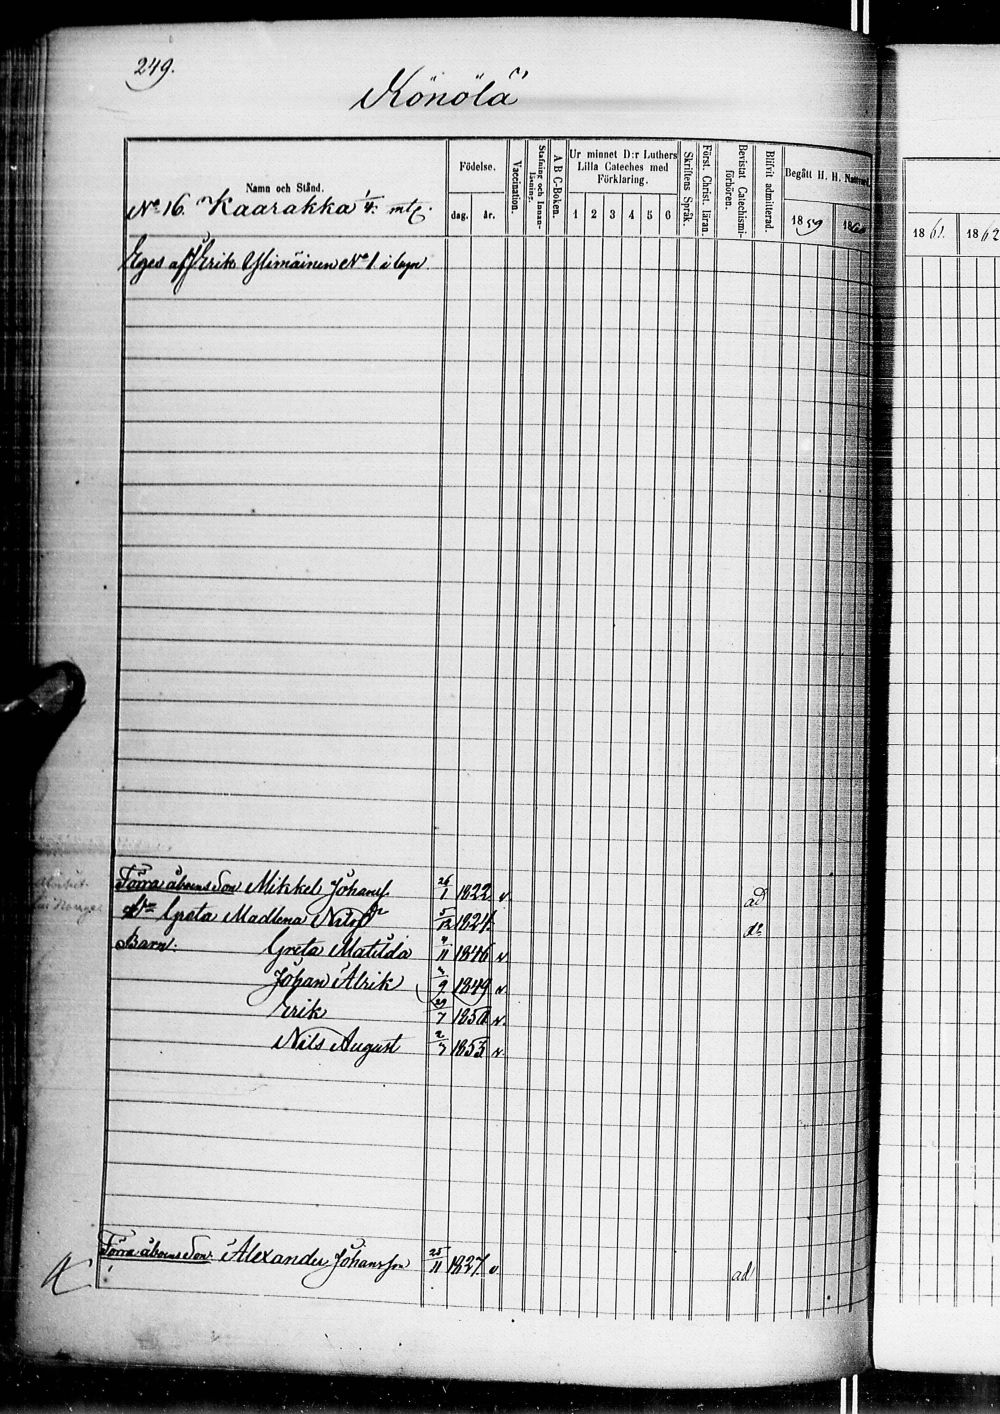 249.
Könölä
Namn och Stånd.
Födelse.
dag. år.
Vaccination.
Stafning och Innanläsning.
A B C-Boken.
Ur minnet D:r Luthers Lilla Cateches med Förklaring.
1 2 3 4 5 6
Skriftens Språk.
Först. Christ. läran.
Bevistat Catechismiförhören.
Blifvit admitterad.
Begått H. H. Nattvard.
1859 1860
1861. 1862
No 16. Kaarakka 1/4. mtl.
Eges af Erik Ylimäinen No 1 i byn
Förra åboens Son Mikkel Johanss. 26/1 1822 v. ad
Greta Madlena Nilsdr 5/12 1821. do
Barn: Greta Matilda 4/11 1846 v.
Johan Alrik 9 1849 v.
Erik 29/7 1850 v.
Nils August 2/7 1853 v.
Förra åboens Son Alexander Johansson 25/11 1827. v. ad